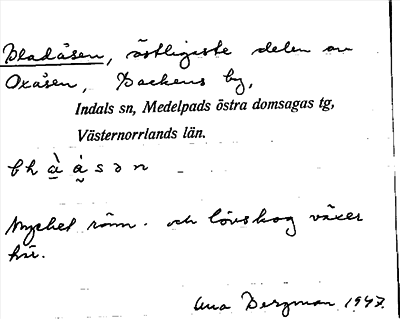 Bladåsen, östligaste delen av
Oxåsen, Backens by,
Indals sn, Medelpads östra domsagas tg,
Västernorrlands län.
Mycket rönn- och lövskog växer
här.
Una Bergman 1947.